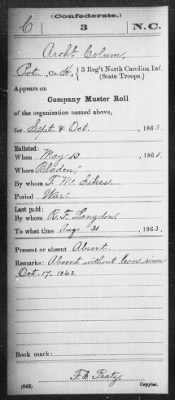 (Confederate.)
C 3 N.C.
Archt Colum,
Pvt., Co. H, 3 Reg't North Carolina Inf.
(State Troops.)
Appears on
Company Muster Roll
of the organization named above,
for Sept. & Oct., 1863.
Enlisted:
When May 10, 1861.
Where Bladen,
By whom T. M. Sikes
Period War
Last paid:
By whom R. F. Langdon
To what time Aug. 31, 1863.
Present or absent Absent.
Remarks: Absent without leave since
Oct. 17, 1863.
Book mark:
(642)
Copyist.